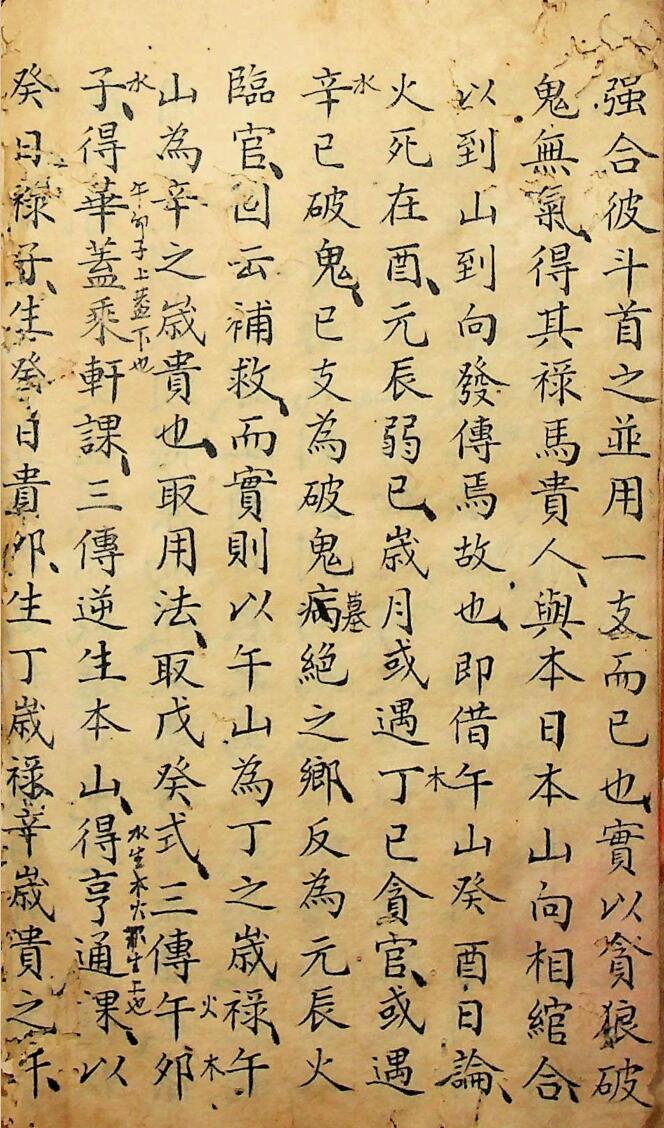 强合彼斗首之並用一支而已也實以貪狼破
鬼無氣得其祿馬貴人與本日本山向相綰合
以到山到向發傳焉故也即借午山癸酉日論
火死在酉元辰弱已歲月或遇丁木巳貪官或遇
辛水巳破鬼巳支為破鬼病墓絕之鄉反為元辰火
臨官囙云補救而實則以午山為丁之歲祿午
山為辛之歲貴也取用法取戊癸式三傳午火卯木
子水得華蓋乘軒課午卯子上蓋下也三傳逆生本山得亨通課水生木火派生上也以
癸日祿子生癸日貴卯生丁歲祿辛歲貴之午